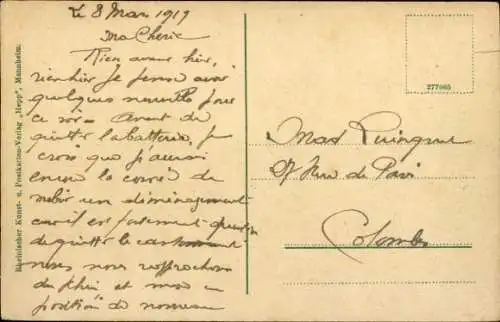 Le 8 Mars 1919
Ma Cherie
Rien avant hier,
rien hier je pense avoir
quelques nouvelles pour
ce soir. Avant de
quitter la batterie, je
crois que j'aurai
encore la corvée de
subir un déménagement
car il est fortement question
de quitter le cantonnement
nous nous rapprochons
du Rhin et mise en
position de nouveau
Rheinischer Kunst- u. Postkarten-Verlag „Hepp“, Mannheim.
277065
Mad
Rue de Paris
Colombes